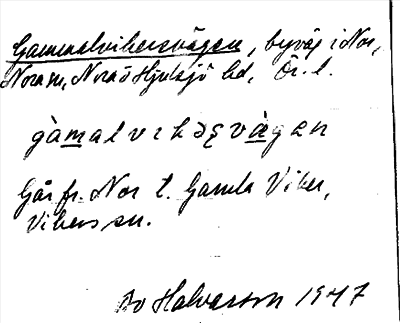 Gammalvibersvägen, byväg i Nor,
Nora sn, Nora o Hjulsjö bd, Ör. l.
gàmalvɪbəṣvä̀gən
Går fr. Nor t. Gamla Viber,
Vibers sn.
Bo Halvarson 1947